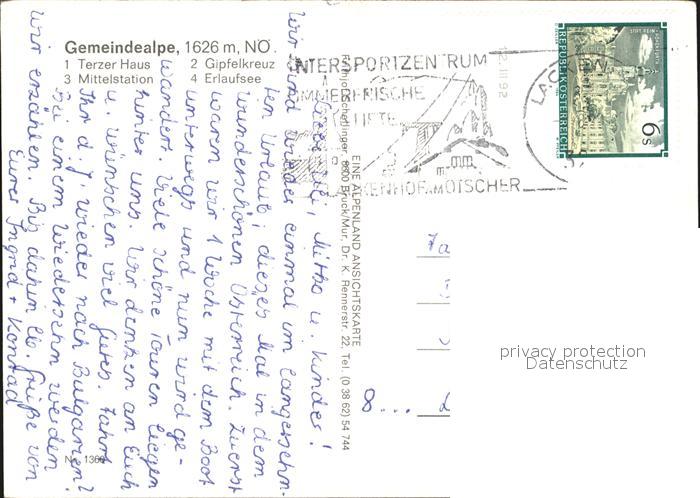 Gemeindealpe, 1626 m, NÖ.
1 Terzer Haus 2 Gipfelkreuz
3 Mittelstation 4 Erlaufsee
WINTERSPORTZENTRUM
SOMMERFRISCHE
LACKENHOF a. ÖTSCHER
12. III 92
LACKEN
STIFT REIN
REPUBLIK ÖSTERREICH
6 S
EINE ALPENLAND ANSICHTSKARTE
Schettinger, 8600 Bruck/Mur, Dr. K. Rennerstr. 22, Tel. (0 38 62) 54 744
Liebe Mitko u. Kinder!
Wir sind wieder einmal im langersehn-
ten Urlaub, dieses Mal in dem
wunderschönen Österreich. Zuerst
waren wir 1 Woche mit dem Boot
unterwegs und nun wird ge-
wandert. Viele schöne Touren liegen
hinter uns. Wir denken an Euch
u. wünschen viel Gutes. Fahrt
Ihr d. J. wieder nach Bulgarien?
Bei einem Wiedersehn werden
wir erzählen. Bis dahin lb. Grüße von
Eurer Ingrid + Konrad
8...
privacy protection
Datenschutz